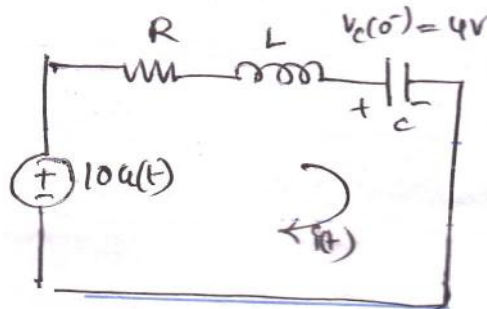 R
L
Vc(0-) = 4V
+
-
C
+
-
10u(t)
i(t)